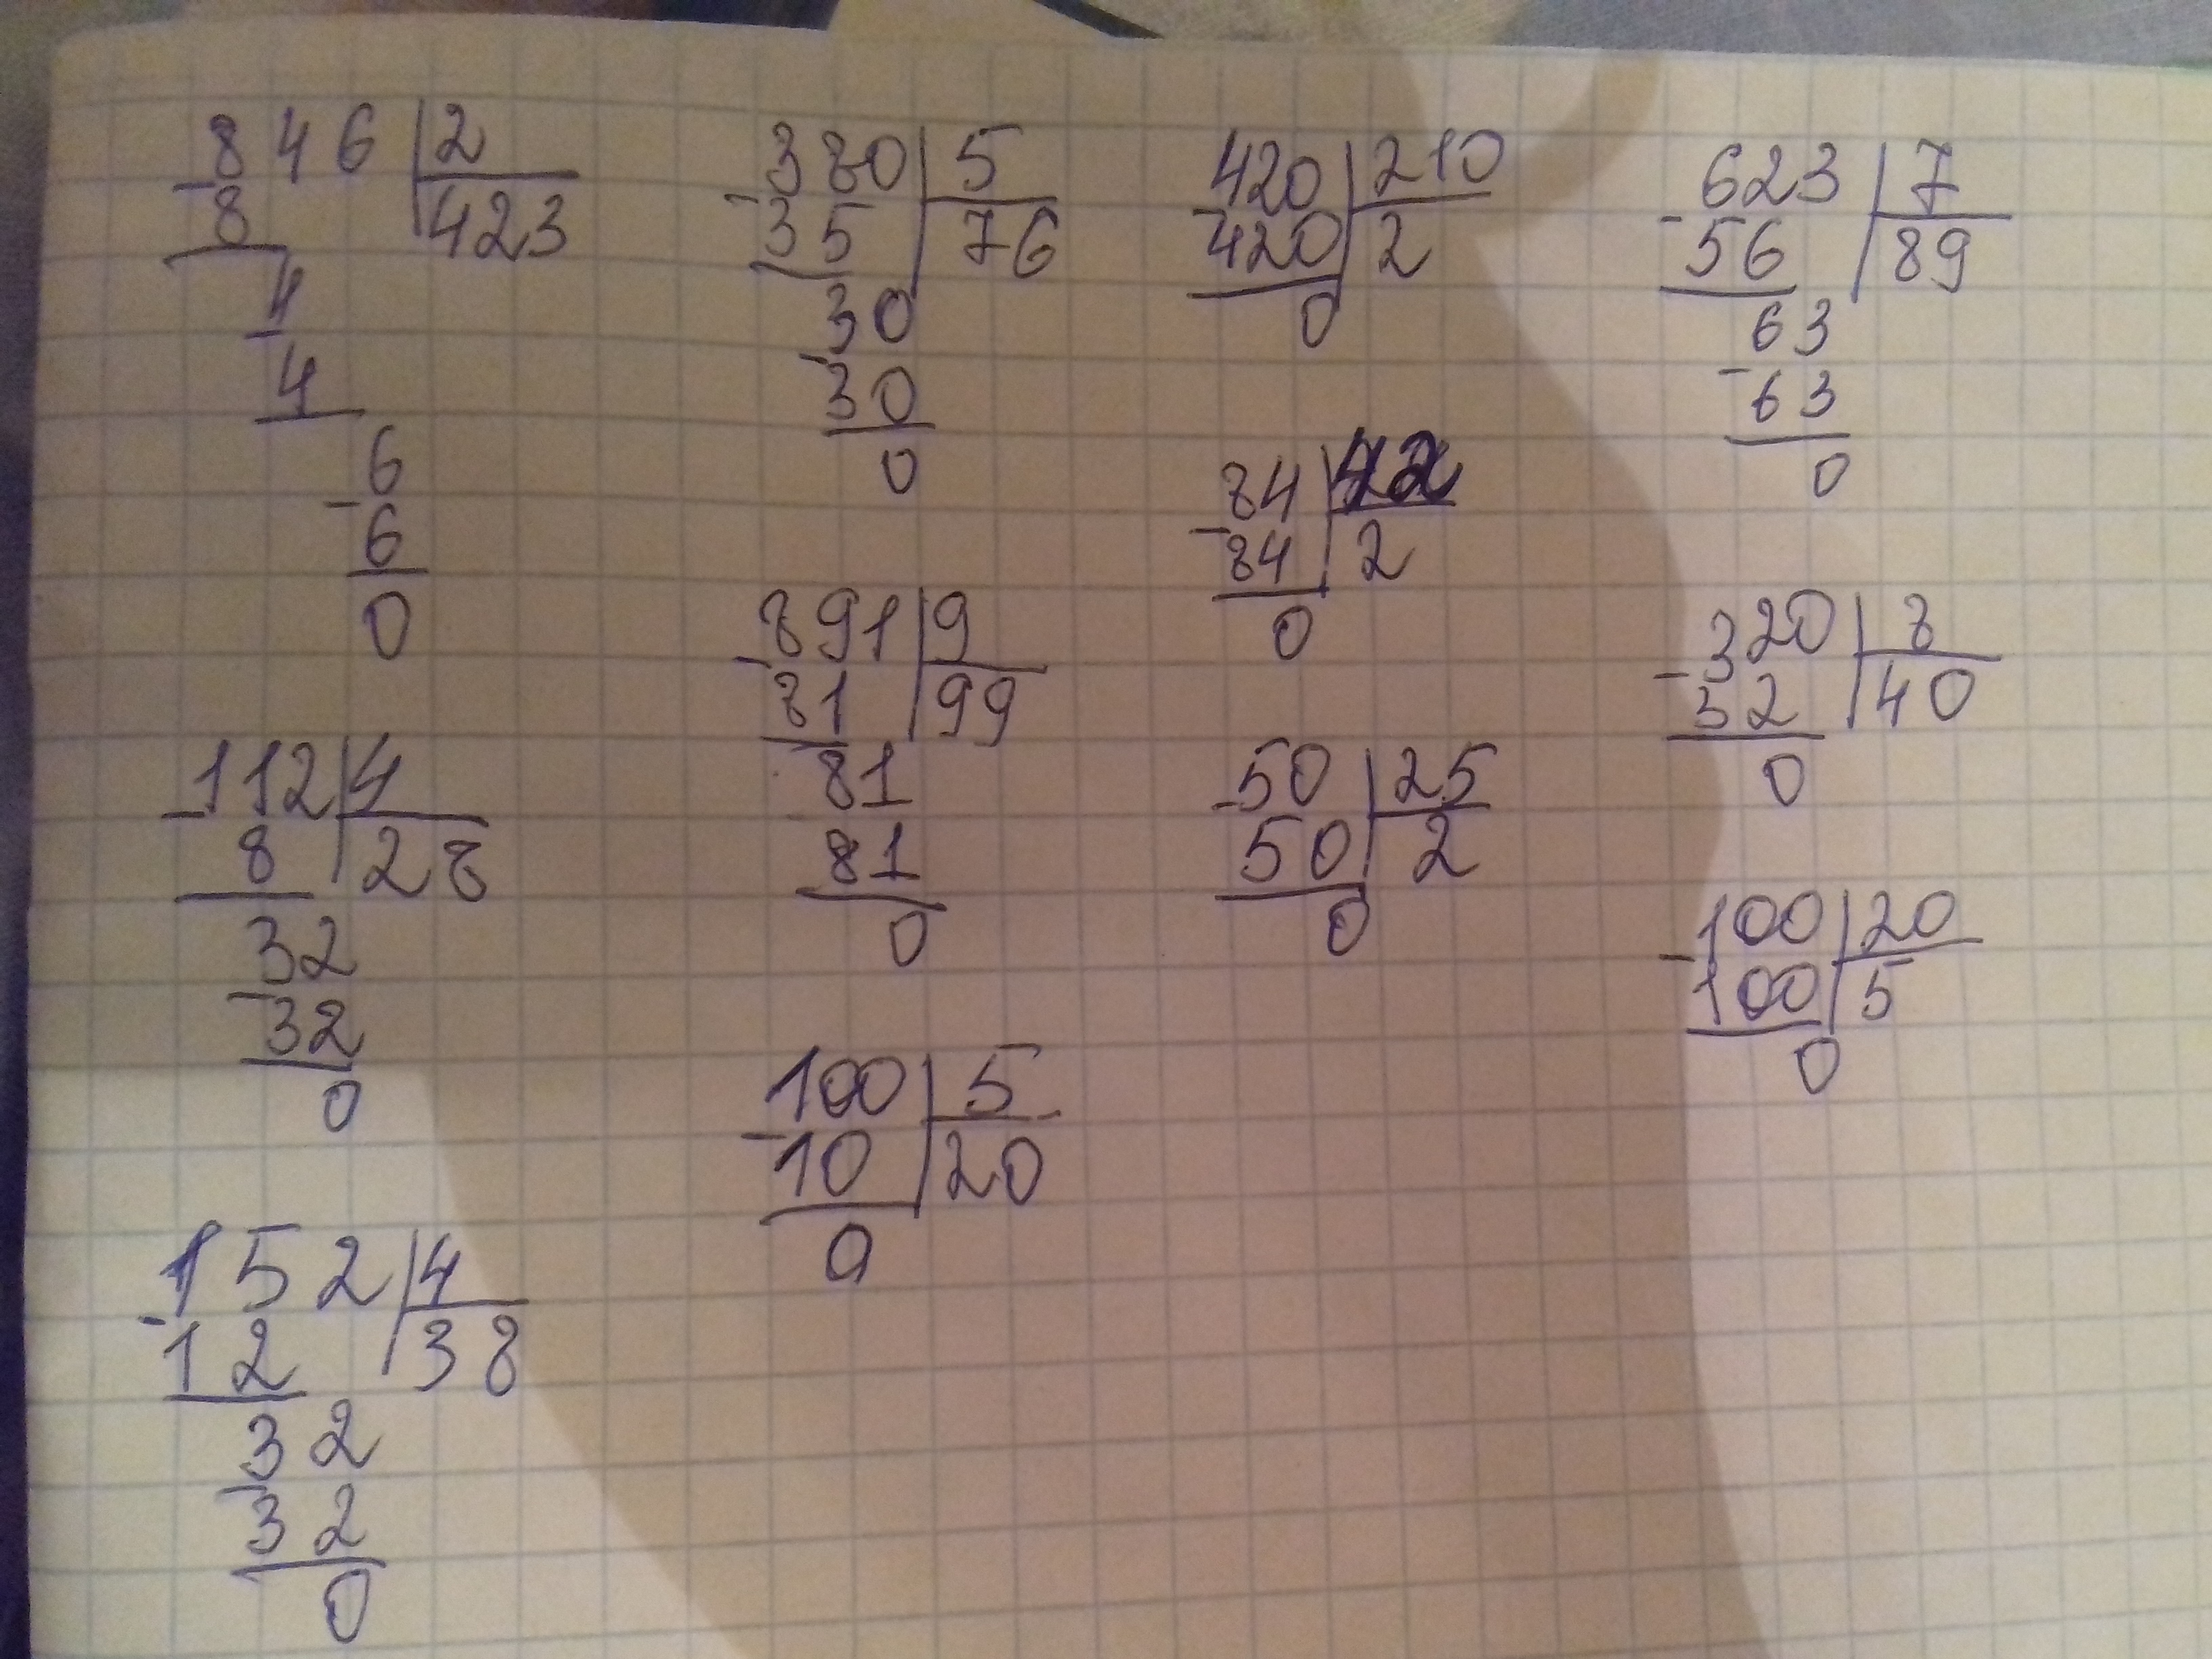 846 2
-8 423
4
-4
6
-6
0
112 4
-8 28
32
-32
0
152 4
-12 38
32
-32
0
380 5
-35 76
30
-30
0
891 9
-81 99
81
81
0
100 5
-10 20
0
420 210
-420 2
0
84 42
-84 2
0
50 25
-50 2
0
623 7
-56 89
63
-63
0
320 8
-32 40
0
100 20
-100 5
0